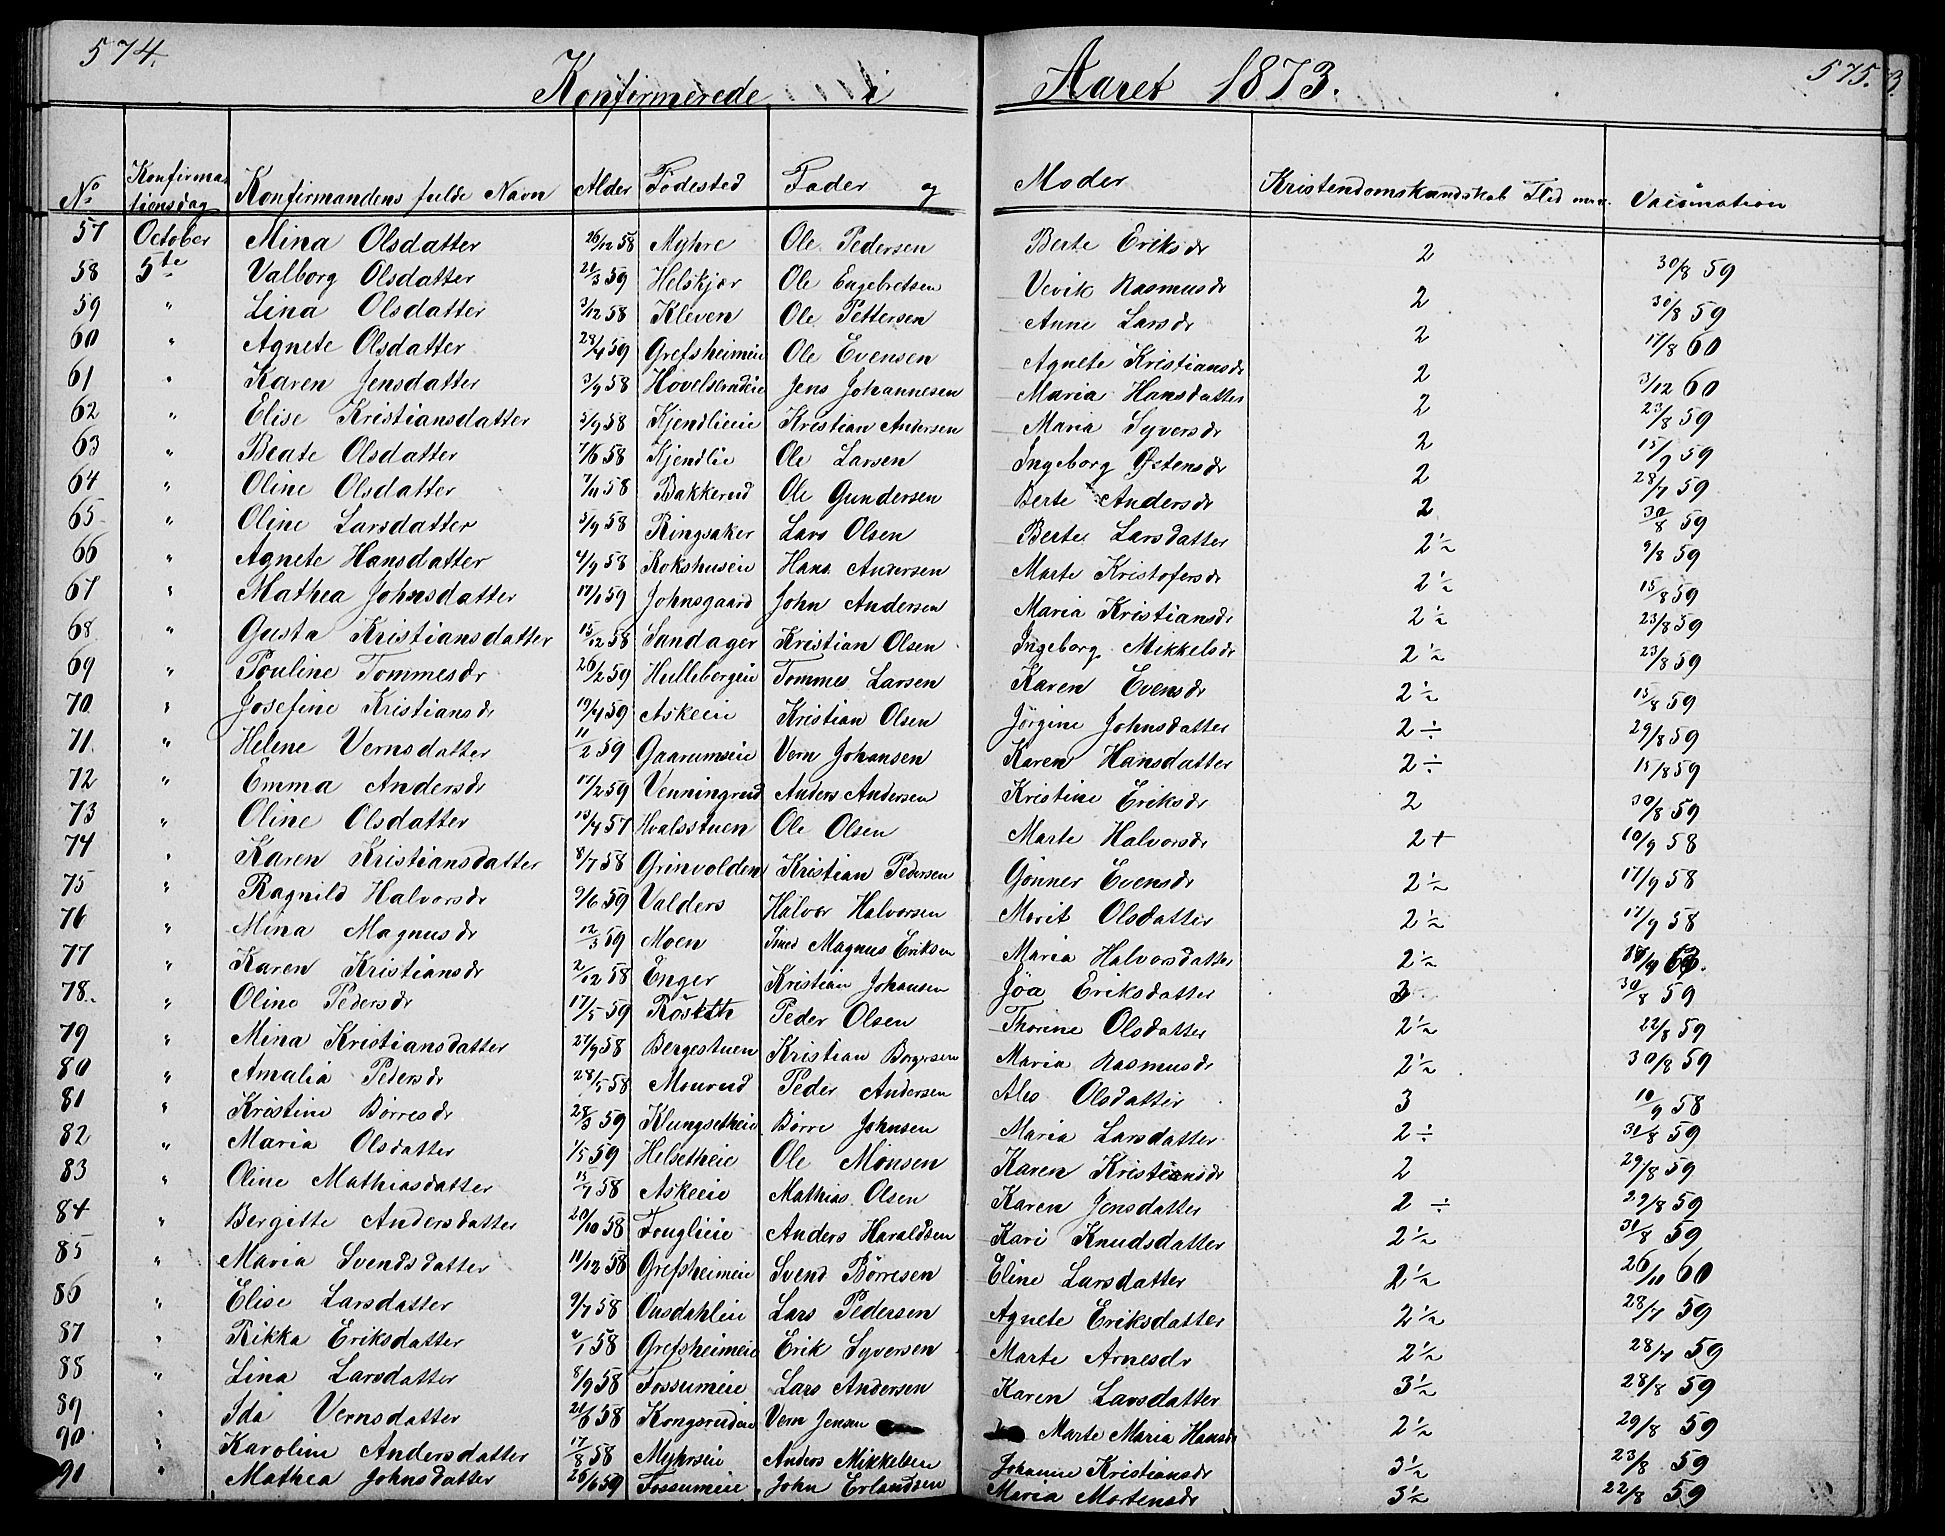 574.
575.
Konfirmerede i Aaret 1873.
No Konfirmationsdag Konfirmandens fulde Navn Alder Fødested Fader og Moder Kristendomskundskab Flid m.v. Vacination
57 October Mina Olsdatter 26/12 58 Myhre Ole Pedersen Berte Eriksdr 2 30/8 59
58 5te Valborg Olsdatter 21/3 59 Helskjær Ole Engebretsen Vevik Rasmusdr 2 30/8 59
59 " Lina Olsdatter 3/12 58 Kleven Ole Pettersen Anne Larsdr 2 17/8 60
60 " Agnete Olsdatter 23/4 59 Grefsheimeie Ole Evensen Agnete Kristiansdr 2 3/12 60
61 " Karen Jensdatter 3/9 58 Hovelsrudeie Jens Johannesen Maria Hansdatter 2 23/8 59
62 " Elise Kristiansdatter 5/9 58 Kjendlieie Kristian Andersen Maria Syversdr 2 15/9 59
63 " Beate Olsdatter 7/6 58 Kjendlie Ole Larsen Ingeborg Østensdr 2 28/7 59
64 " Oline Olsdatter 7/11 58 Bakkerud Ole Gundersen Berte Andersdr 2 30/8 59
65 " Oline Larsdatter 5/9 58 Ringsaker Lars Olsen Berte Larsdatter 2 1/2 9/8 59
66 " Agnete Hansdatter 4/9 58 Rokshuseie Hans Andersen Marte Kristofersdr 2 1/2 15/8 59
67 " Mathea Johnsdatter 17/1 59 Johnsgaard John Andersen Maria Kristiansdr 2 1/2 23/8 59
68 " Gusta Kristiansdatter 15/12 58 Sandager Kristian Olsen Ingeborg Mikkelsdr 2 1/2 23/8 59
69 " Pouline Tommesdr 26/2 59 Hullebergeie Tommes Larsen Karen Evensdr 2 1/2 15/8 59
70 " Josefine Kristiansdr 19/4 59 Askeeie Kristian Olsen Jørgine Johnsdatter 2 ÷ 29/8 59
71. " Helene Vernsdatter 11/2 59 Gaarumseie Vern Johansen Karen Hansdatter 2 ÷ 15/8 59
72 " Emma Andersdr 17/2 59 Venningrud Anders Andersen Kristine Eriksdr 2 30/8 59
73 " Oline Olsdatter 13/4 57 Hvalsstuen Ole Olsen Marte Halvorsdr 2 + 10/9 58
74 " Karen Kristiansdatter 8/7 58 Grinvolden Kristian Pedersen Gønner Evensdr 2 1/2 17/9 58
75 " Ragnild Halvorsdr 9/6 59 Valders Halvor Halvorsen Marit Olsdatter 2 1/2 17/9 58
76 " Mina Magnusdr 12/3 59 Moen Smed Magnus Eriksen Maria Halvorsdatter 2 1/2
77 " Karen Kristiansdr 2/12 58 Enger Kristian Johansen Jøa Eriksdatter 3 30/8 59
78. " Oline Pedersdr 17/5 59 Peder Olsen Thorine Olsdatter 2 1/2 22/8 59
79 " Mina Kristiansdatter 27/9 58 Bergestuen Kristian Borgersen Maria Rasmusdr 2 1/2 30/8 59
80 " Amalia Pedersdr 28/5 58 Mourud Peder Andersen Ales Olsdatter 3 10/9 58
81 " Kristine Børresdr 28/3 59 Klungsetheie Børre Johnsen Maria Larsdatter 2 ÷ 31/8 59
82 " Maria Olsdatter 1/5 59 Helsetheie Ole Monsen Karen Kristiansdr 2 29/8 59
83 " Oline Mathiasdatter 15/7 58 Askeeie Mathias Olsen Karen Jensdatter 2 ÷ 29/8 59
84 " Bergitte Andersdatter 20/10 58 Fouglieie Anders Haraldsen Kari Knudsdatter 2 1/2 31/8 59
85 " Maria Svendsdatter 11/12 58 Grefsheimeie Svend Børresen Eline Larsdatter 2 1/2 26/11 60
86 " Elise Larsdatter 9/7 58 Ousdahleie Lars Pedersen Agnete Eriksdatter 2 1/2 28/7 59
87 " Rikka Eriksdatter 2/1 58 Grefsheimeie Erik Syversen Marte Arnesdr 2 1/2 28/7 59
88 " Lina Larsdatter 8/9 58 Fossumeie Lars Andersen Karen Larsdatter 3 1/2 28/8 59
89 " Ida Vernsdatter 58 Kongsrudeie Vern Jensen Marte Maria Hansdr 2 1/2 29/8 59
90 " Karoline Andersdatter 17/8 58 Myhrseie Anders Mikkelsen Johanne Kristiansdr 3 1/2 23/8 59
91 " Mathea Johnsdatter 26/6 59 Fossumeie John Erlandsen Maria Mortensdr 3 1/2 22/8 59